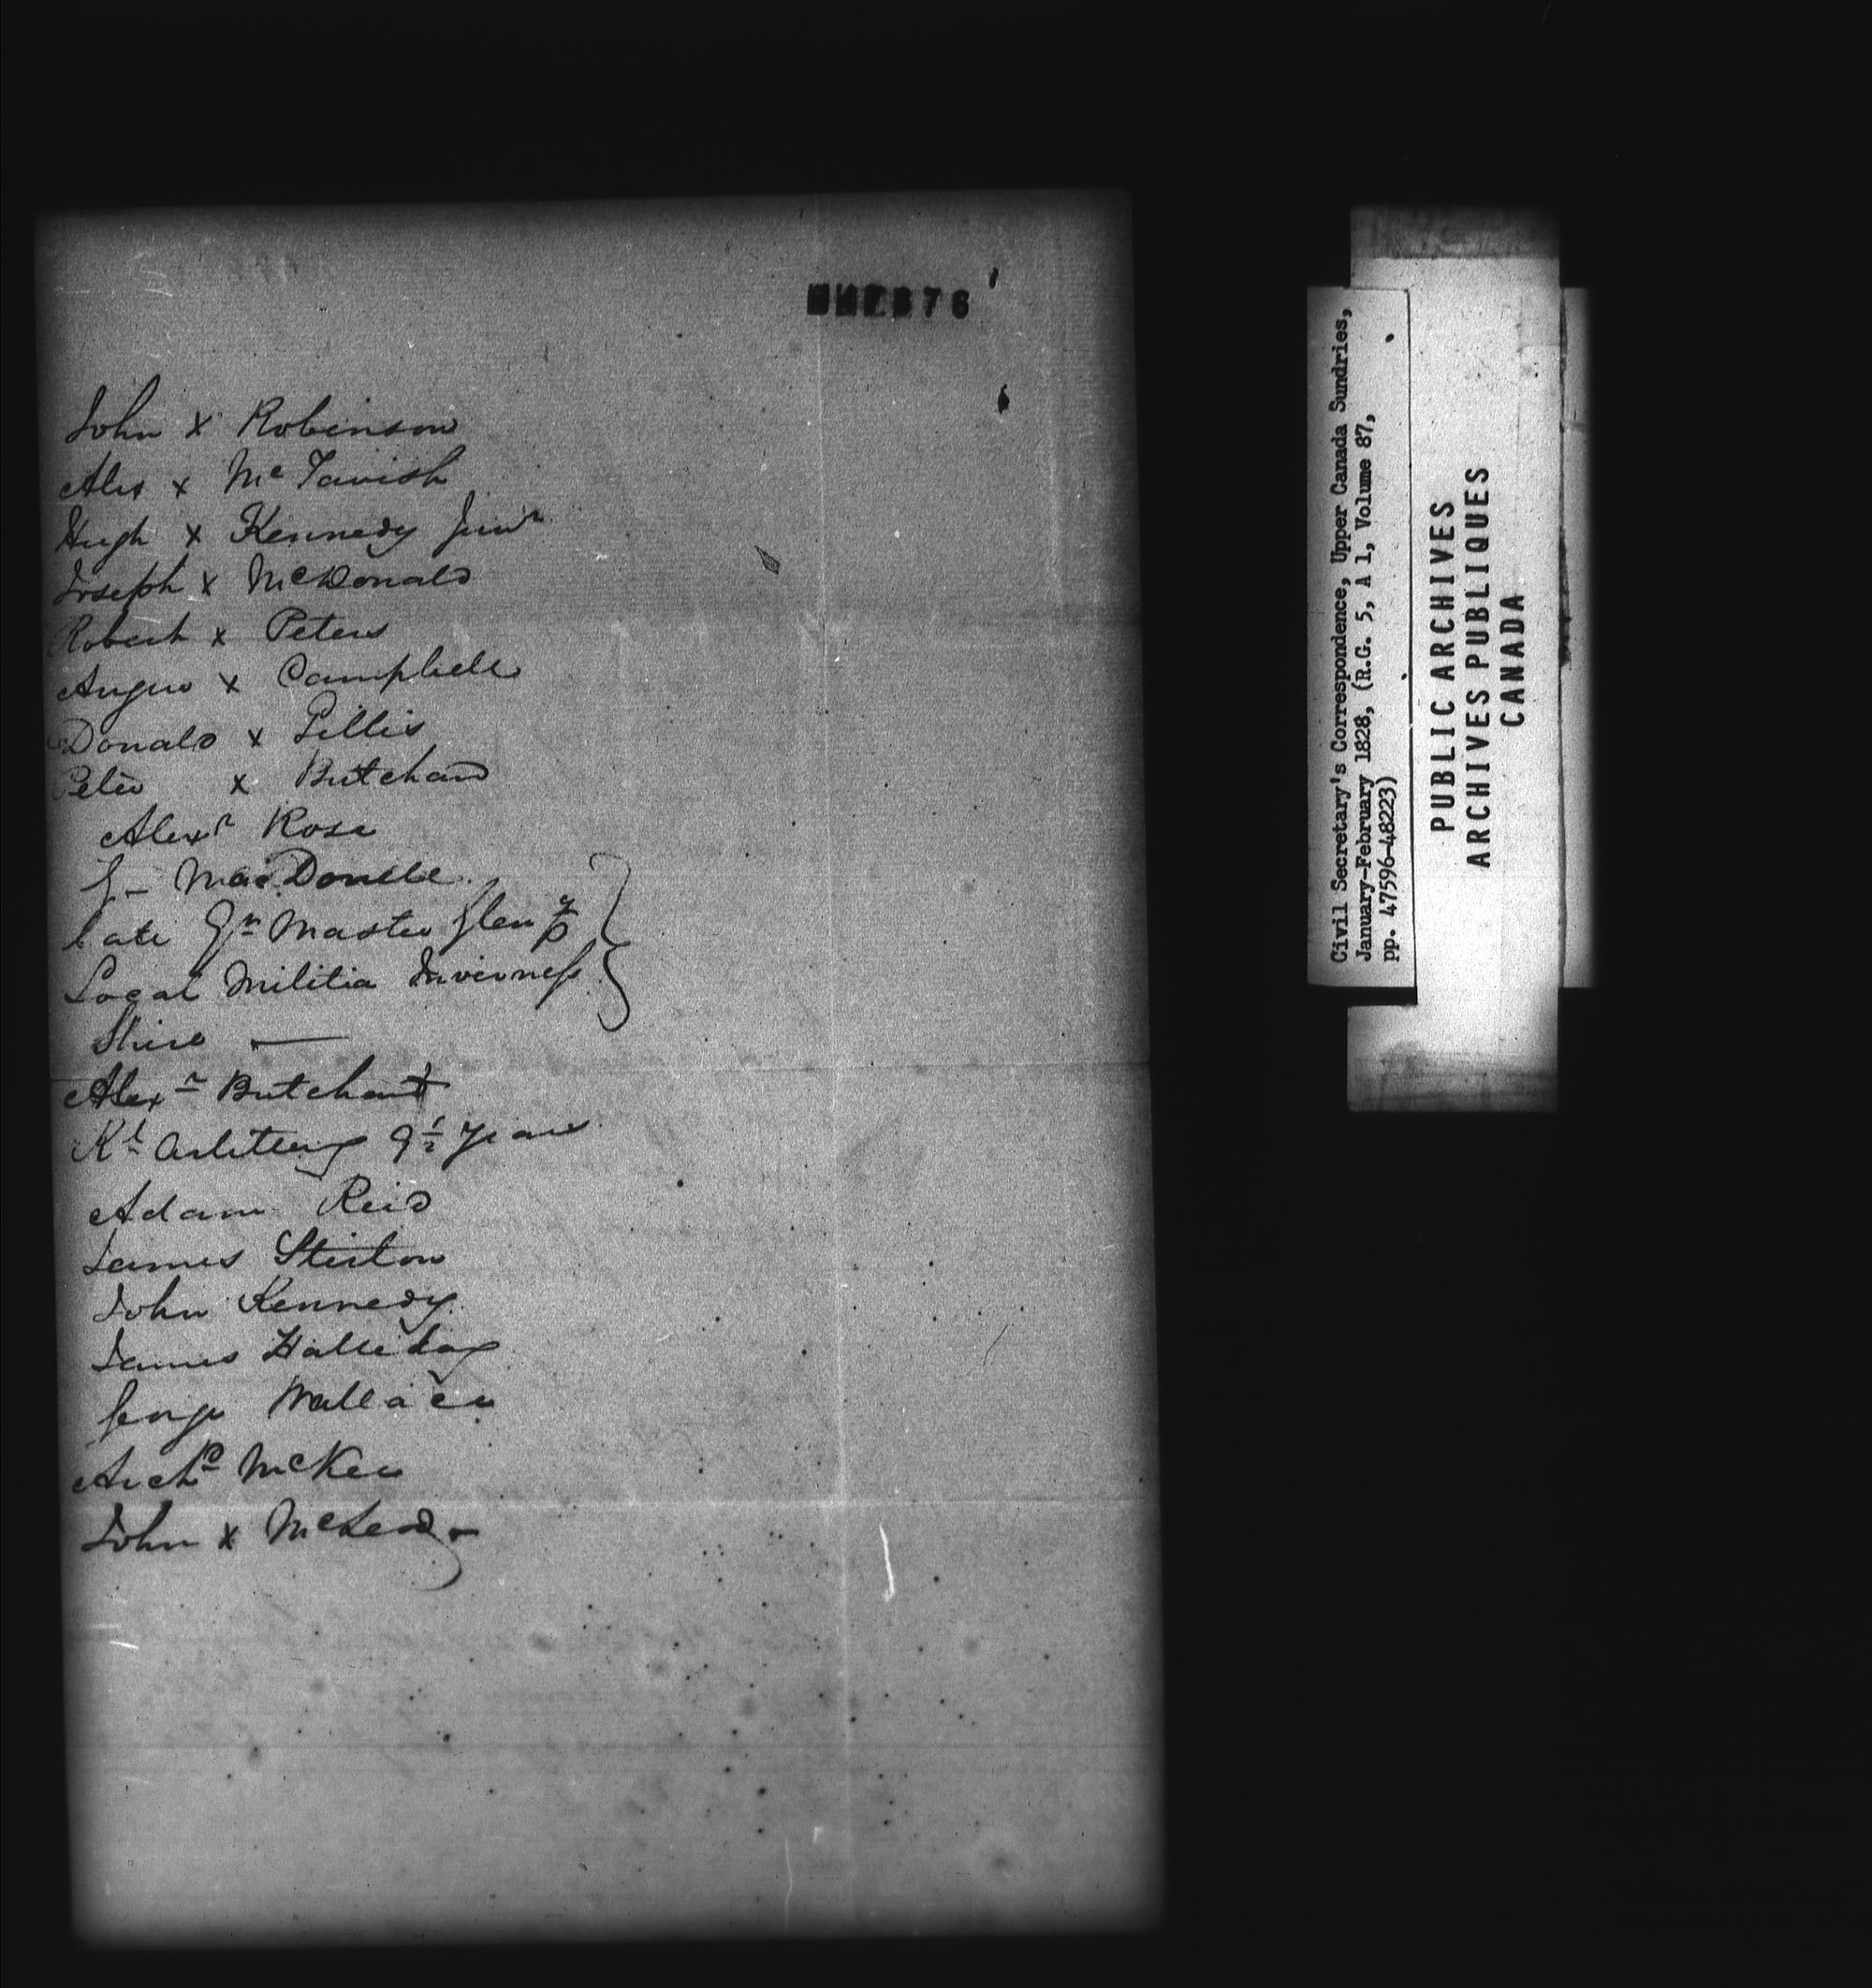 John x Robinson
Alex x McTavish
Hugh x Kennedy Junr
Joseph x McDonald
Robert x Peters
Angus x Campbell
Donald x Gillis
Peter x Butchard
Alexr Rose
J- MacDonell
Late Qr Master Glen
Local Militia Inverness
Shire —
Alexr Butchart
Rl Artillery 9½ years
Adam Reid
James Stirton
John Kennedy
James Halliday
George Wallace
Archd McKee
John x McLeod
Civil Secretary's Correspondence, Upper Canada Sundries,
January-February 1828, (R.G. 5, A 1, Volume 87,
pp. 47596-48223)
PUBLIC ARCHIVES
ARCHIVES PUBLIQUES
CANADA